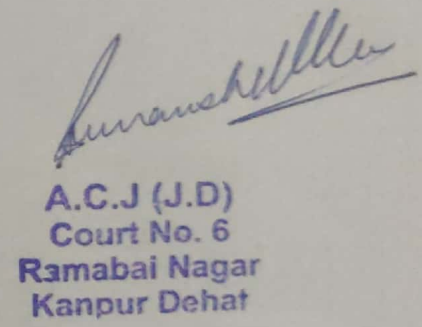 A.C.J (J.D)
Court No. 6
Ramabai Nagar
Kanpur Dehat